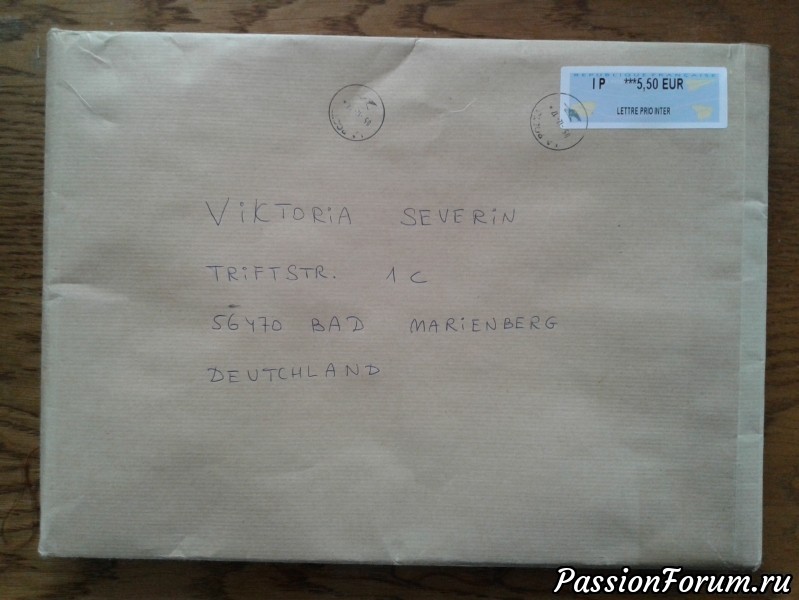 REPUBLIQUE FRANÇAISE
IP ***5,50 EUR
LETTRE PRIO INTER
ViKTORiA SEVERiN
TRiFTSTR. 1C
56470 BAD MARiENBERG
DEUTCHLAND
PassionForum.ru